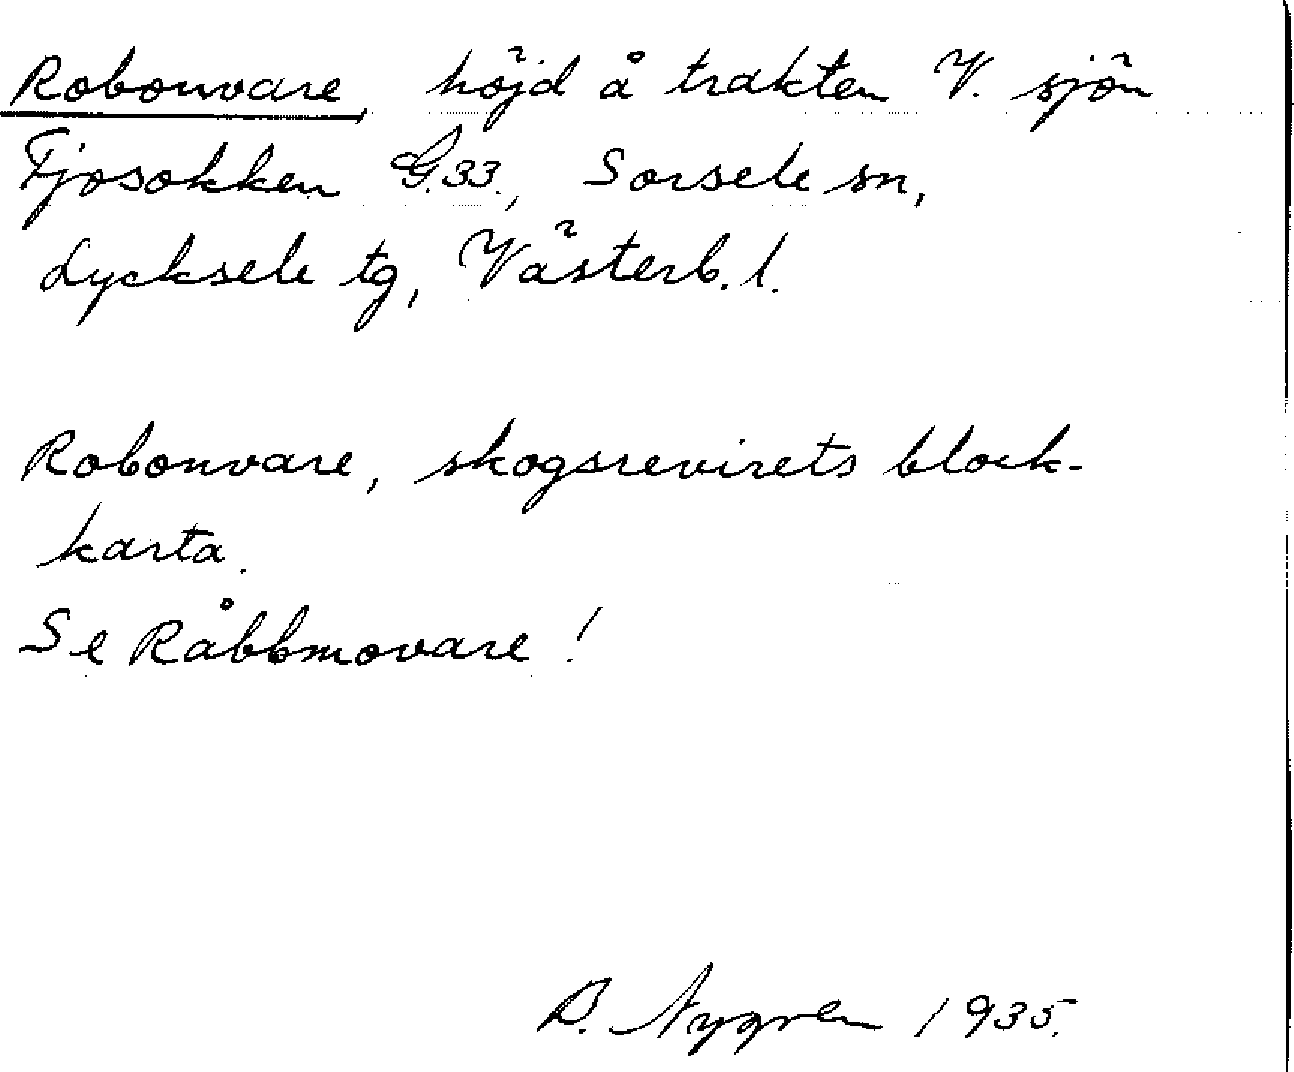 Robonvare, höjd å trakten V. sjön
Fjosokken G.33., Sorsele sn,
Lycksele tg, Västerb. l.
Robonvare, skogsrevirets block-
karta.
Se Råbbmovare!
B. Nygren 1935.